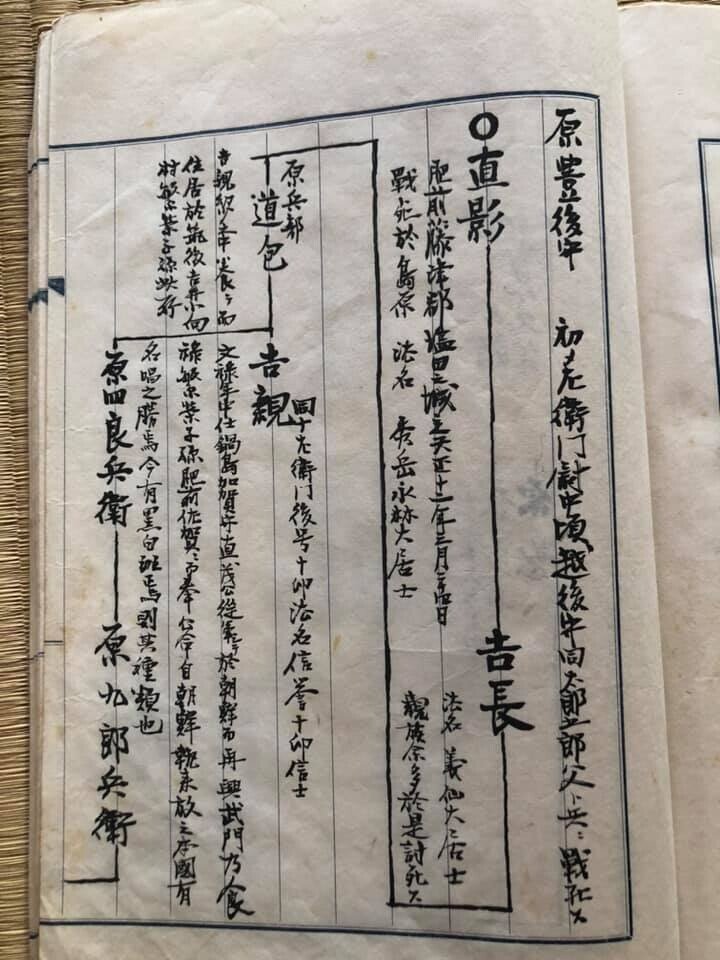 原豊後守 初左衛門尉中頃越後守同太郎五郎父ト共ニ戦死ス
直影
肥前藤津郡塩田之城主天正十二年三月二十四日
戦死於島原 法名 秀岳永林大居士
吉長
法名 義仙大居士
親族余多於是討死ス
原兵部
道包
吉親幼年養之而
住居於筑後吉井小向
村繁栄子孫此存
吉親
同十左衛門後号十卯法名信誉十卯信士
文禄年中仕鍋島加賀守直茂公従軍於朝鮮而再興武門乃食
禄繁栄子孫肥前佐賀ニ而奉公命自朝鮮
放之本国有
名唱之 焉今有黒白斑焉則其種類也
原四良兵衛
原九郎兵衛